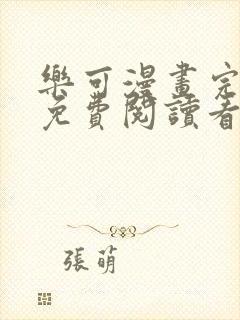 樂可漫畫完
免費閱讀看
張萌